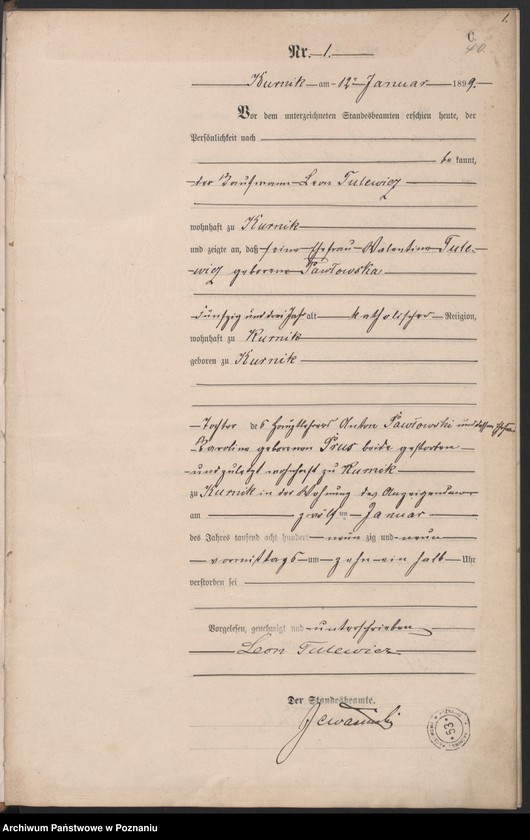 1.
C.
Nr. 1.
Kurnik am 12ten Januar 1899.
Vor dem unterzeichneten Standesbeamten erschien heute, der
Persönlichkeit nach
be kannt,
der Kaufmann Leon Tulewicz
wohnhaft zu Kurnik
und zeigte an, daß seine Ehefrau Valentina Tule-
wicz geborene Pawłowska
Fünfzig und drei Jahr alt katholischer Religion,
wohnhaft zu Kurnik
geboren zu Kurnik
Tochter des Hauptlehrers Anton Pawłowski und dessen Ehefrau
Karolina geborenen Prus beide gestorben
und zuletzt wohnhaft zu Kurnik
zu Kurnik in der Wohnung des Anzeigenden
am zwölften Januar
des Jahres tausend acht hundert neun zig und neun
vormittags um zehn ein halb Uhr
verstorben sei
Vorgelesen, genehmigt und unterschrieben
Leon Tulewicz
Der Standesbeamte.
53
Archiwum Państwowe w Poznaniu